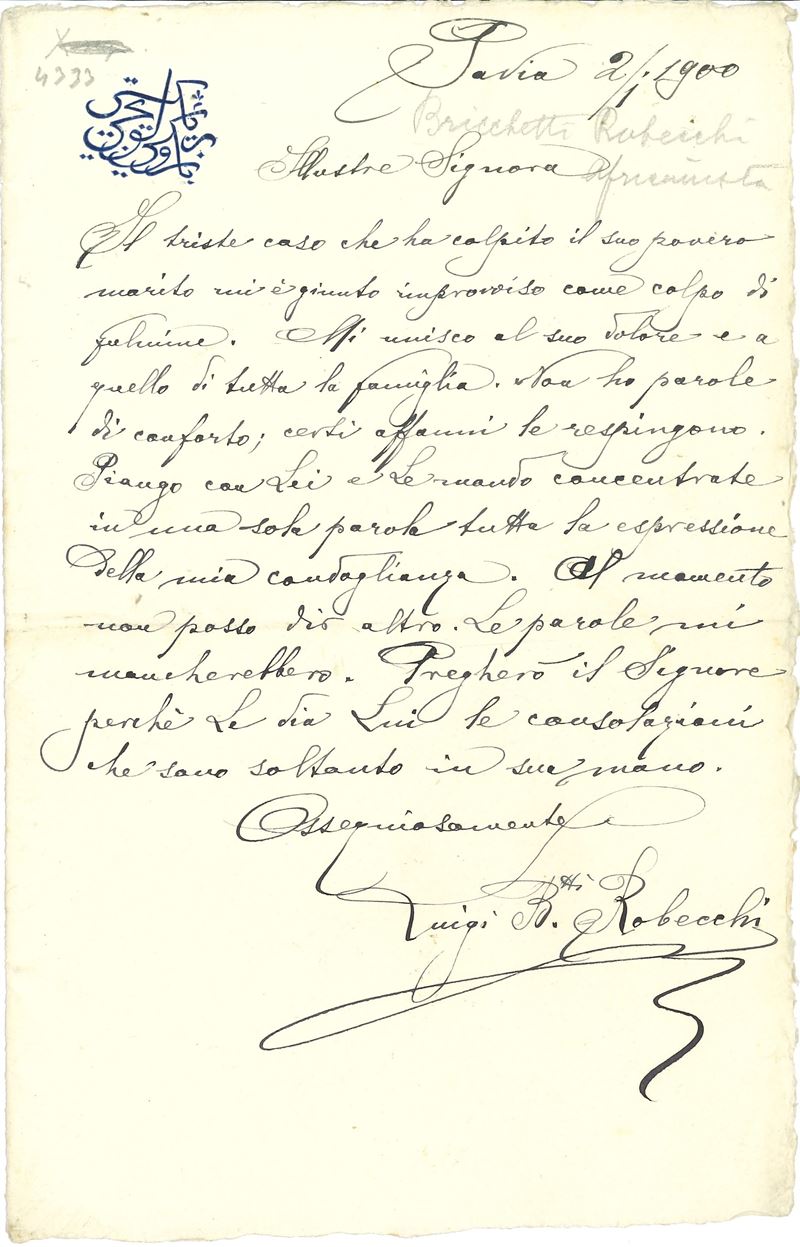 4333
Pavia 2/1. 1900
Bricchetti Robecchi
Africanista
Illustre Signora
Il triste caso che ha colpito il suo povero
marito mi è giunto improvviso come colpo di
fulmine. Mi unisco al suo dolore e a
quello di tutta la famiglia. Non ho parole
di conforto; certi affanni le respingono.
Piango con Lei e Le mando concentrate
in una sola parola tutta la espressione
della mia condoglianza. Al momento
non posso dir altro. Le parole mi
mancherebbero. Pregherò il Signore
perchè Le dia Lui le consolazioni
che sono soltanto in sua mano.
Ossequiosamente
Luigi B.tti Robecchi